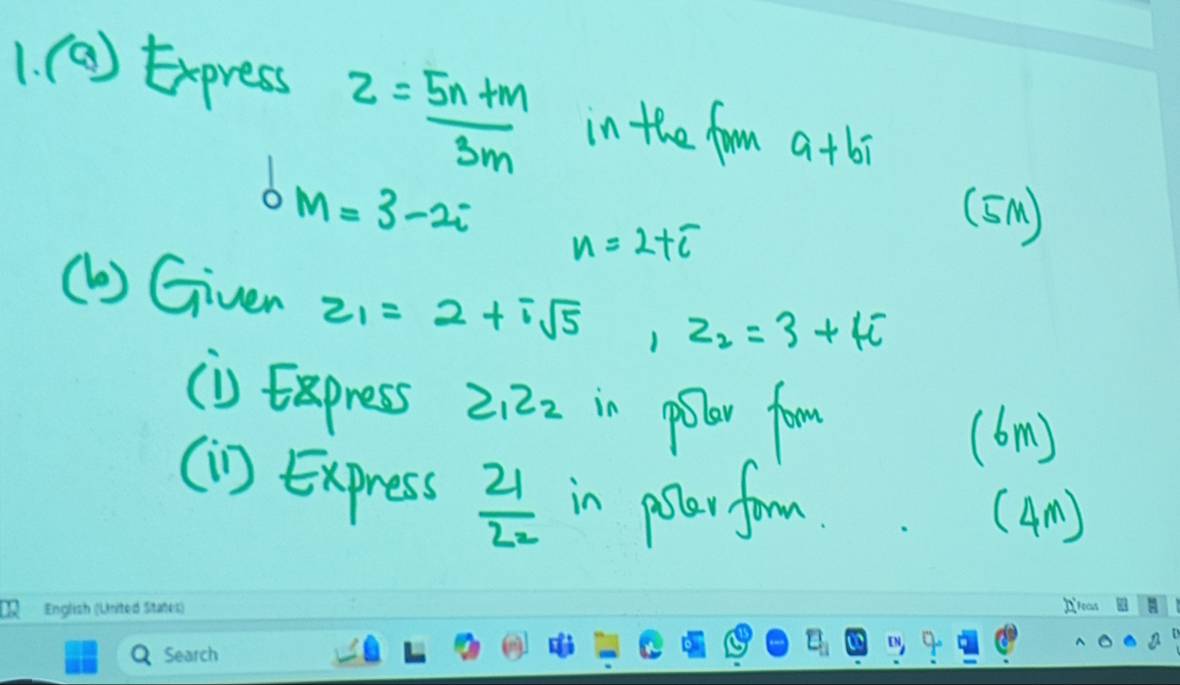 1.(a) Express z = 5n+m / 3m in the form a+bi
m = 3-2i n = 2+i (5M)
(b) Given z1 = 2+i√5 , z2 = 3+4i
(i) Express z1z2 in polar form (6m)
(ii) Express z1/z2 in polar form. . (4m)
English (United States) Focus
Search
EN